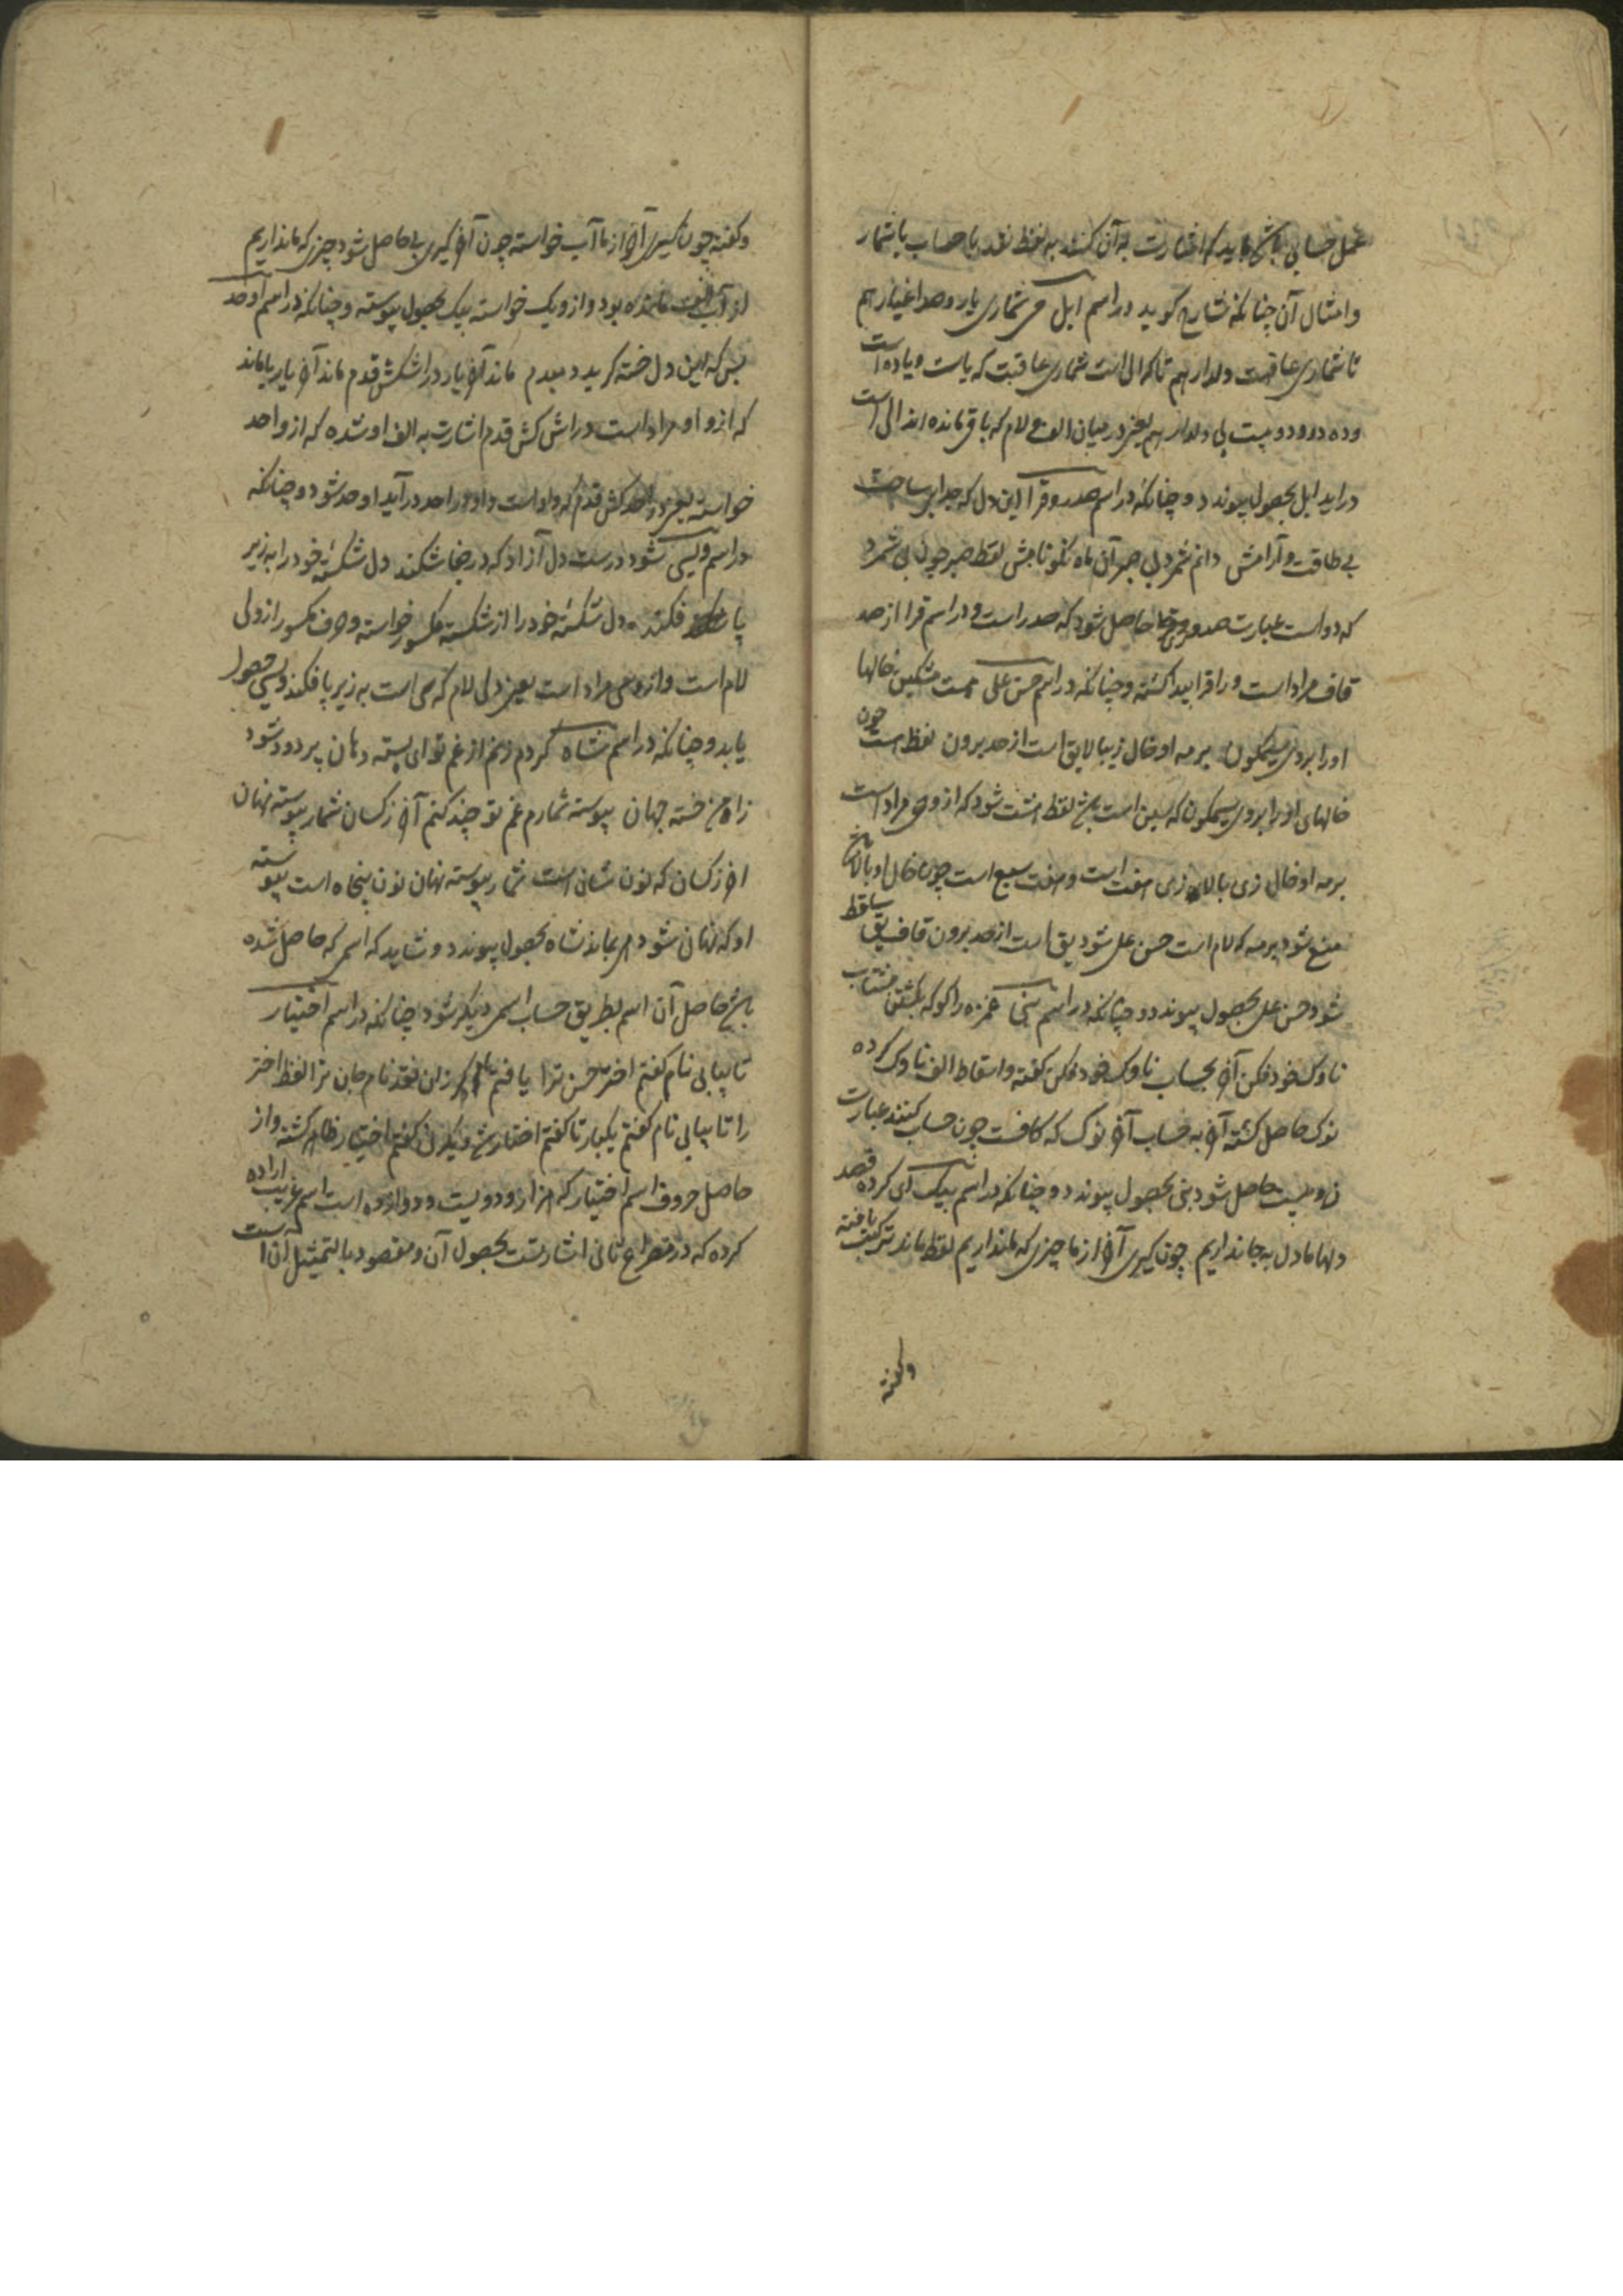 عمل حسابی باشد باید که اشارت به آن کنند به لفظ نقد یا حساب یا شمار
و امثال آن چنانکه شارح گوید در اسم ابل می شماری یار و صد اغیار هم
تا شماری عاقبت دلدار هم تا که ال است شماری عاقبت که یاست و یا ده است
وده دو و دو بیست بی دلدار هم یعنی در میان الف و لام که باقی مانده اند الی است
دراید ابل بحصول پیوندد و چنانکه در اسم صدر و قرا این دل که جدا بر ساحتش
بی طاقت و آرامش دانم شمرد بی صبر آن ماه نکو نامش لفظ صبر چون بی شمرد
که دو است عبارت صد و حاصل شود که صدر است و در اسم قرا از صد
قاف مراد است و را قرا پیدا گشته و چنانکه در اسم حسن علی هست مشکین خالها
او را بروی سیمگون برمه او خال زیبا لایق است از حد برون لفظ هست چون
خالهای او را بروی سیمگون که سین است لفظ هشت شود که از وی مراد است
برمه او خال زی بالای زی هفت است و هفت سبع است چون خال او بالای
منع شود برمه که لام است حسن علی شود یق است از حد برون قاف یق ساقط
شود حسن علی بحصول پیوندد و چنانکه در اسم نبی غمزه را گو که بکشتن مشتاب
ناوک خود فکن آخر بحساب ناوک خود فکن گفته و اسقاط الف ناوک کرده
نوک حاصل گشته آخر به حساب آخر نوک که کافست چون حساب کنند عبارت
ن و بیست حاصل شود نبی بحصول پیوندد و چنانکه در اسم بیک ای کرده قصد
دلها ما دل به جا نداریم چون گیری آخر از ما چیزی که ما نداریم لفظ ماند ترکیب یافته
وگفته
وگفته چون گیری آخر از ما آب خواسته چون آخر گیری بی حاصل شود چیزی که ما نداریم
از آب مانده بود و از و یک خواسته بیک بحصول پیوسته و چنانکه در اسم اوحد
بس که این دل خسته گریید دمبدم ماند آخر یار در اشکش قدم ماند آخر یار یا ماند
که از و او مراد است در اش کش قدم اشارت به الف او شده که از واحد
خواسته یعنی در احد کش قدم که واو است و او در احد درآید اوحد شود و چنانکه
در اسم ویسی شود درست دل آزاد که در جفا شکند دل شکسته خود را به زیر
پا فکند دل شکسته خود را از شکسته مکسور خواسته و حرف مکسور از ولی
لام است و از و سی مراد است یعنی دلی لام که سی است به زیر پا فکند ویسی حصول
یابد و چنانکه در اسم شاه کردم زخم از غم تو ای پسته دهان پر درد شود
زاه من خسته جهان پیوسته شمارم غم تو چند کنم آخر ز کسان شمار پیوسته نهان
اخر ز کسان که نون شان است شمار پیوسته نهان نون پنجاه است پیوسته
او که نهان شود بماند شاه بحصول پیوندد و شاید که اسمی که حاصل شده
باشد حاصل آن اسم بطریق حساب اسمی دیگر شود چنانکه در اسم اختیار
تا بیابی نام گفتم اختر حسن ترا یافتم زان نقد نام جان ترا لفظ اختر
را تا بیابی نام گفتم یکبار تا گفتم اختیار ظاهر گشته و از
حاصل حروف اسم اختیار که هزار و دویست و دوازده است اسم غریب اراده
کرده که در مصراع ثانی اشارتست بحصول آن و مقصود بالتمثیل آن است